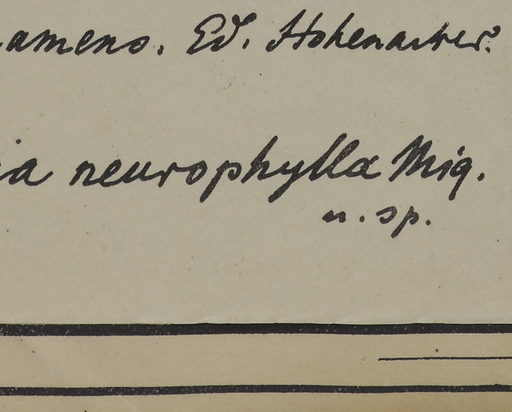 amens. Ed. Hohenacker.
ia neurophylla Miq.
n. sp.